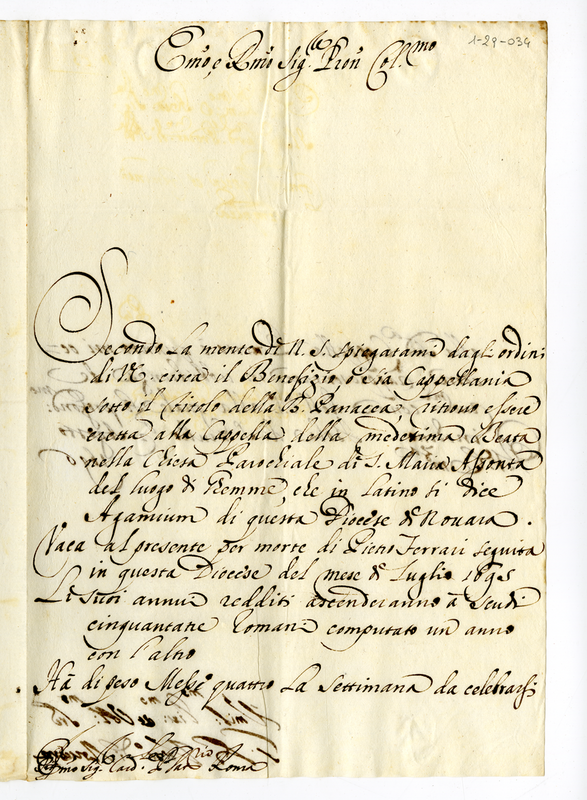 1-29-034
Emo e Rmo Sig.re Pron Col.mo
Secondo la mente di N. S. spiegatami dagl'ordini
di V.E. circa il Benefizio ò sia Cappellania
sotto il titolo della B. Panacea, ritrovo essere
eretta alla Cappella della medesima Beata
nella Chiesa Parochiale di S. Maria Assonta
del luogo di Ghemme, che in Latino si dice
Agamium di questa Diocese di Novara.
Vaca al presente per morte di Pietro Ferrari seguita
in questa Diocese del mese di Luglio 1695
Li suoi annui redditi ascenderanno à scudi
cinquantatre Romani computato un anno
con l'altro
Hà di peso Messe quattro la settimana da celebrarsi
Sig. Card. Roma